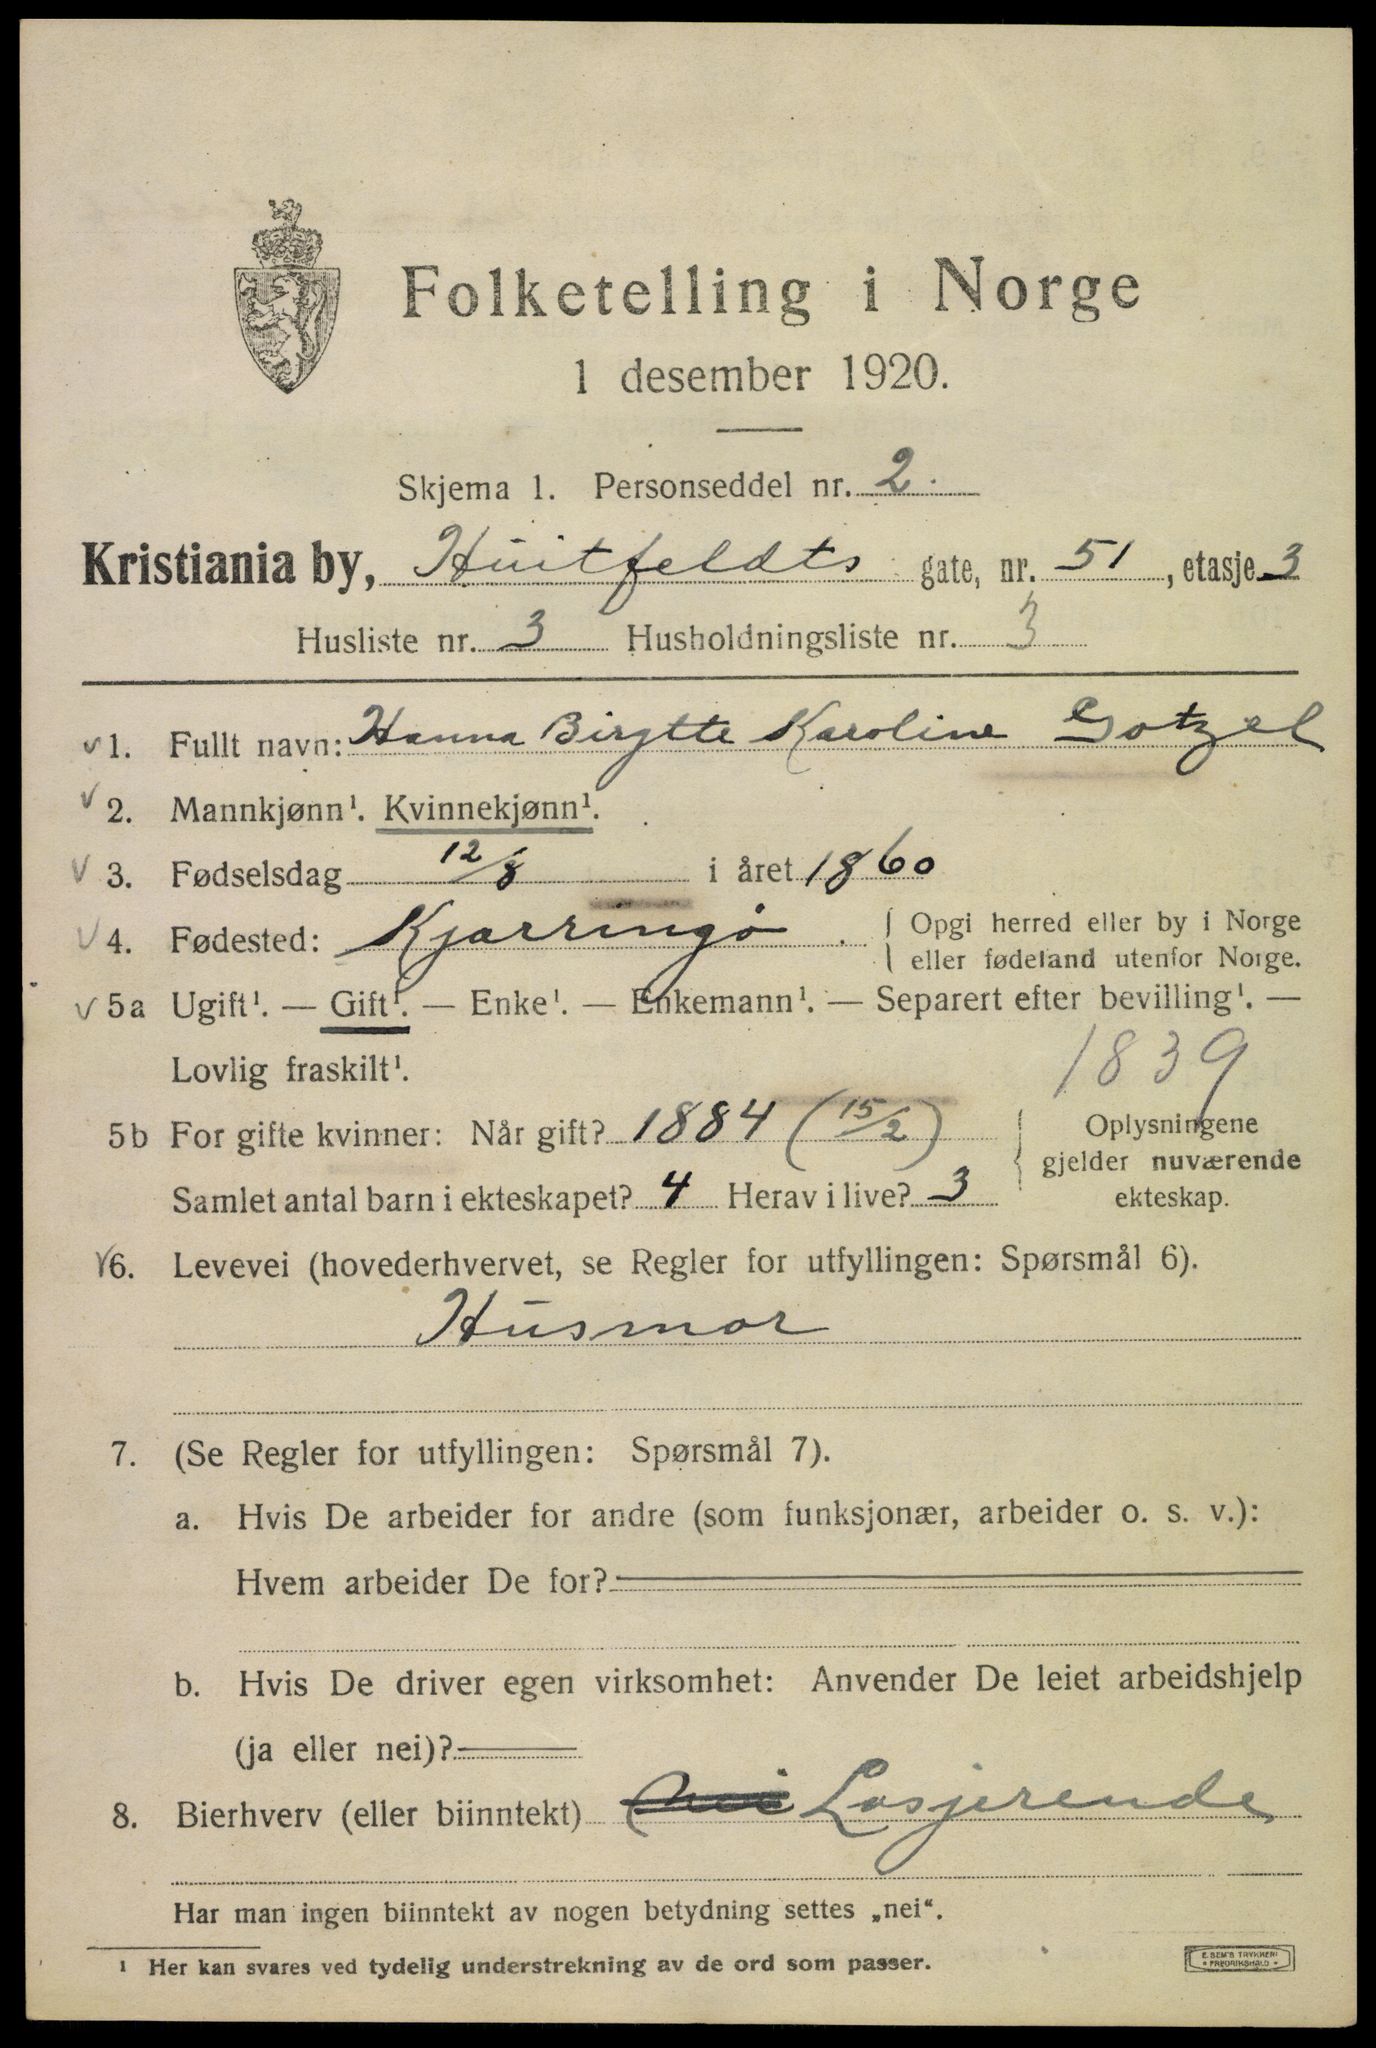 Folketelling i Norge
1 desember 1920.
Skjema 1. Personseddel nr. 2.
Kristiania by, Huitfeldts gate, nr. 51, etasje 3
Husliste nr. 3 Husholdningsliste nr. 3
1. Fullt navn: Hanna Birgitte Karoline Gotzel
2. Mannkjønn¹. Kvinnekjønn¹.
3. Fødselsdag 12/8 i året 1860
4. Fødested: Kjærringø . { Opgi herred eller by i Norge
eller fødeland utenfor Norge.
5a Ugift¹. — Gift¹. — Enke¹. — Enkemann¹. — Separert efter bevilling¹. —
Lovlig fraskilt¹. 1839
5b For gifte kvinner: Når gift? 1884 (15/2) { Oplysningene
gjelder nuværende
Samlet antal barn i ekteskapet? 4 Herav i live? 3 ekteskap.
6. Levevei (hovederhvervet, se Regler for utfyllingen: Spørsmål 6).
Husmor
7. (Se Regler for utfyllingen: Spørsmål 7).
a. Hvis De arbeider for andre (som funksjonær, arbeider o. s. v.):
Hvem arbeider De for?
b. Hvis De driver egen virksomhet: Anvender De leiet arbeidshjelp
(ja eller nei)?
8. Bierhverv (eller biinntekt) Nei Losjerende
Har man ingen biinntekt av nogen betydning settes „nei“.
¹ Her kan svares ved tydelig understrekning av de ord som passer.
E. SEM'S TRYKKERI
• FREDRIKSHALD •